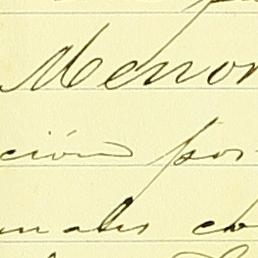 Menor
ción por
nales co